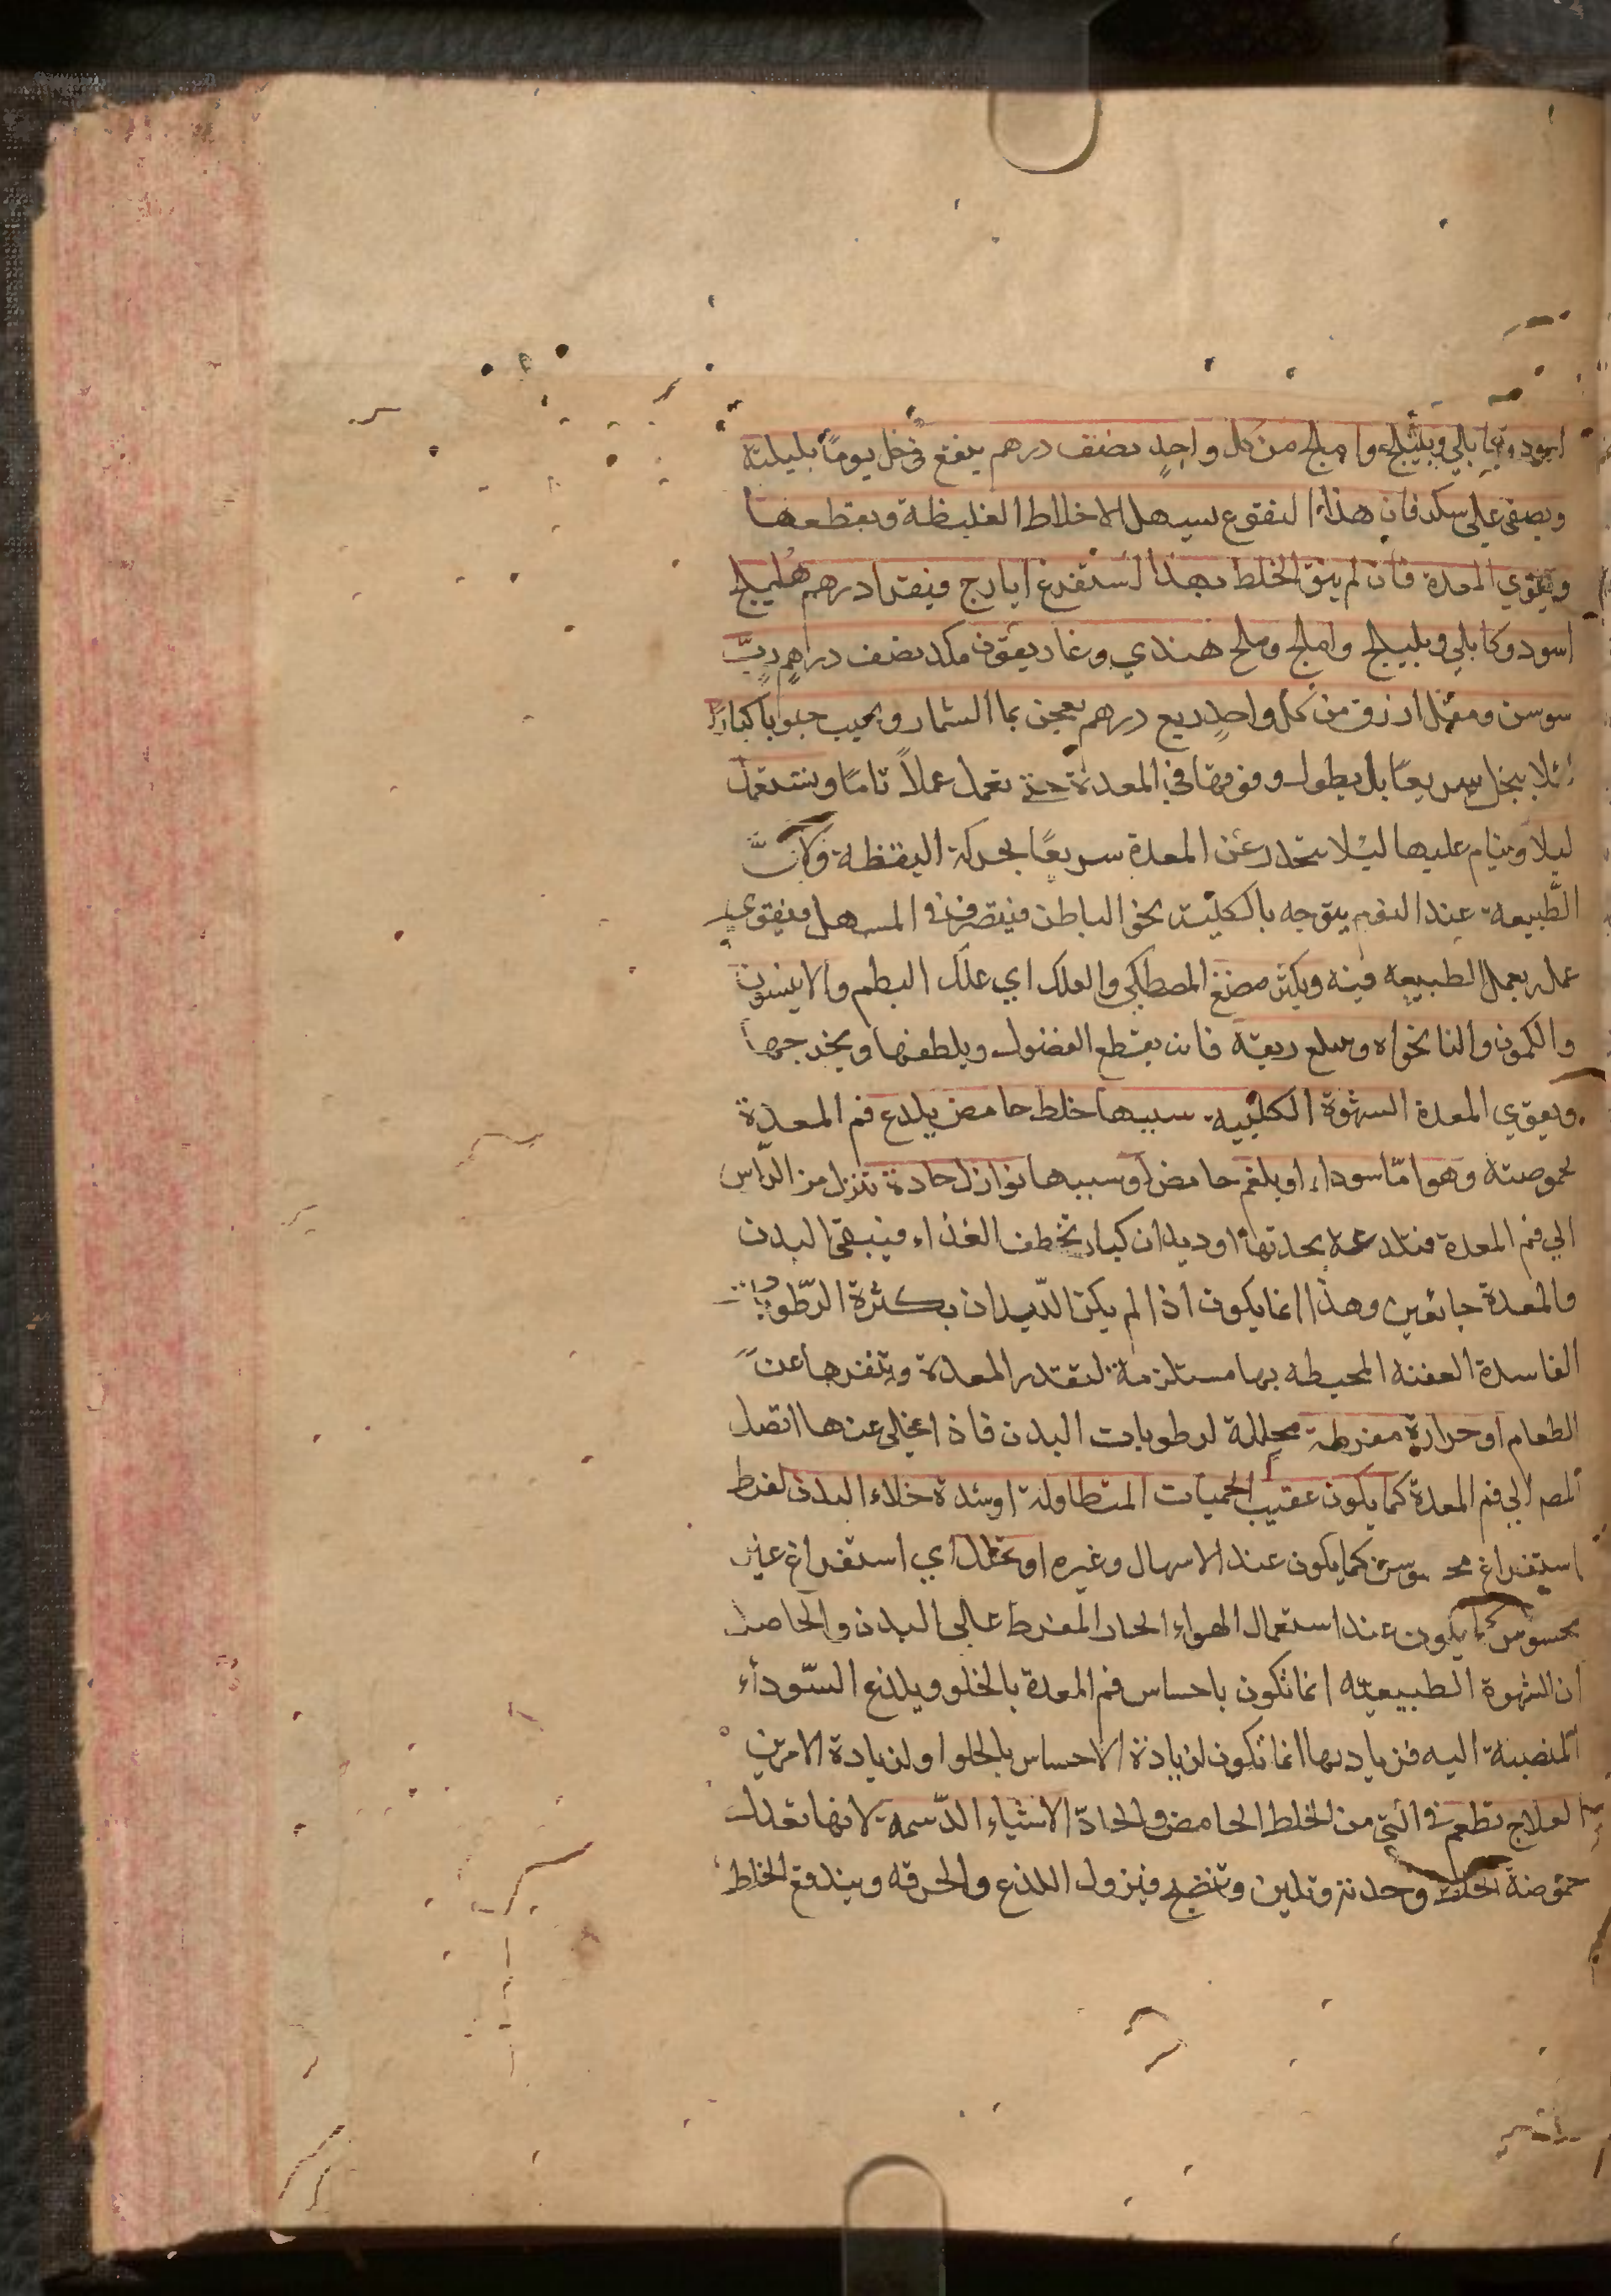 اسود وكابلي وبليلج واملج من كل واحدٍ نصف درهم ينقع في خل يومًا بليلته
ويصفى على سكر فان هذا النقوع يسهل الاخلاط الغليظة ويقطعها
ويقوي المعدة فان لم ينق الخلط بهذا استفرغ ايارج فيقرا درهم هليلج
اسود وكابلي وبليلج واملج وملح هندي وغاريقون مكد نصف دراهم ربّ
سوسن ومقل ازرق من كل واحدٍ ربع درهم يعجن بما الشمار ويحبب حبوبا كبارًا
لئلا ينحل سريعًا بل يطول وقوفها في المعدة حتى تعمل عملاً تامًا ويستعمل
ليلا وينام عليها ليلا ينحدر عن المعدة سريعًا بحركة اليقظة وكانَّ
الطَّبيعة عند النوم يتوجه بالكلية نحو الباطن فيتصرف في المسهل فيقوي
عمله بعمل الطبيعه فيه ويكثر مضغ المصطكي والعلك اي علك البطم والانيسون
والكمون والنانخواه وبلع ريقه فانه يقطع الفضول ويلطفها ويخرجها
ويقوي المعدة الشهوة الكلبيه سببها خلط حامض يلدغ فم المعدة
لحموضته وهو امّا سوداء او بلغم حامض او سببها نوازل حادة تنزل من الراس
الي فم المعدة فتلدغه بحدتها او ديدان كبار تخطف الغذاء فيبقى البدن
والمعدة جائعين وهذا انما يكون اذا لم يكن الدّيدان بكثرة الرّطوبات
الفاسدة العفنه المحيطه بها مستلزمة لتقذر المعدة وتنفرها عن
الطعام او حرارة مفرطة محللة لرطوبات البدن فاذا تخلى عنها اتصل
المص الي فم المعدة كما يكون عقيب الحميات المتطاولة او شدة خلاء البدن لفرط
استفراغ محسوس كما يكون عند الاسهال وغيره او تحلل اي استفراغ غير
محسوس كما يكون عند استعمال الهواء الحار المفرط عالي البدن والحاصل
ان الشهوة الطبيعيّه انما تكون باحساس فم المعدة بالخلو ويلذع السّوداء
المنصبة اليه فزيادتها انما تكون لزيادة الاحساس بالخلو او لزيادة الامرين
العلاج يطعم في التي من الخلط الحامض والحادّ الاشياء الدّسمه لانها تعدل
حموضة الخلط وحدته وتلين وتنضج فيزول اللذع والحرقه ويندفع الخلط